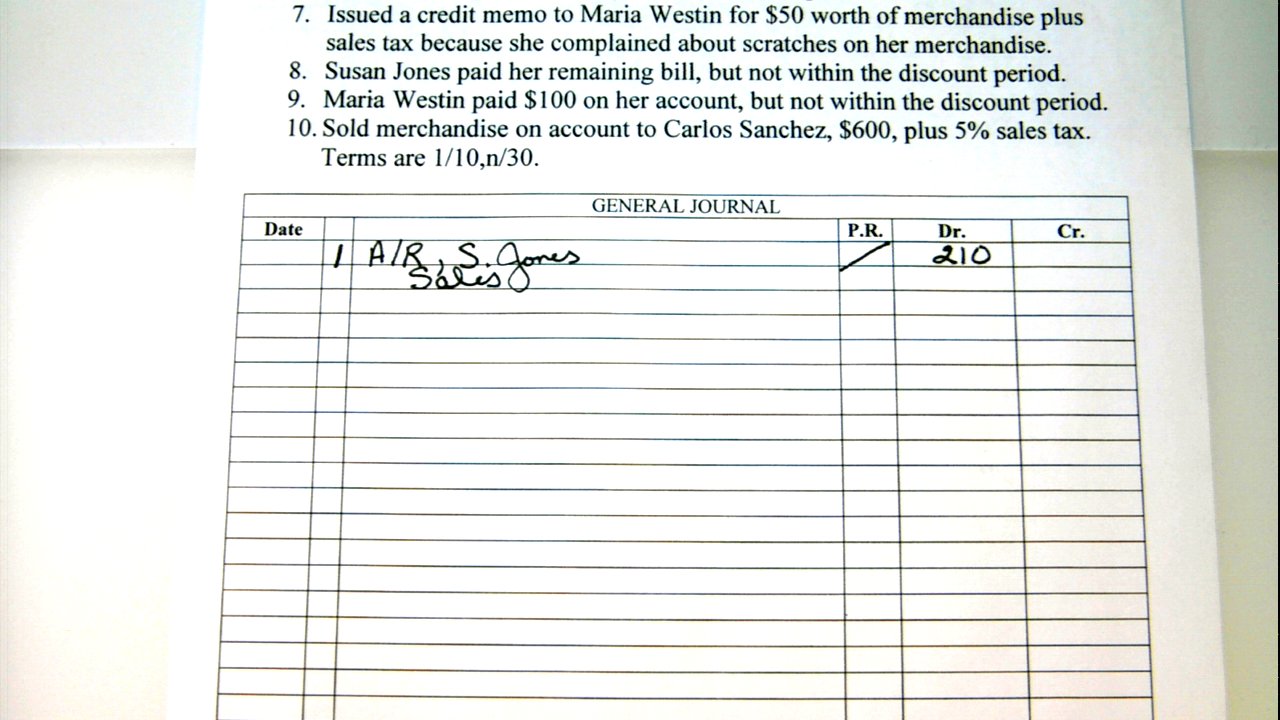 7. Issued a credit memo to Maria Westin for $50 worth of merchandise plus
sales tax because she complained about scratches on her merchandise.
8. Susan Jones paid her remaining bill, but not within the discount period.
9. Maria Westin paid $100 on her account, but not within the discount period.
10. Sold merchandise on account to Carlos Sanchez, $600, plus 5% sales tax.
Terms are 1/10,n/30.
GENERAL JOURNAL
Date P.R. Dr. Cr.
1 A/R, S. Jones / 210
Sales